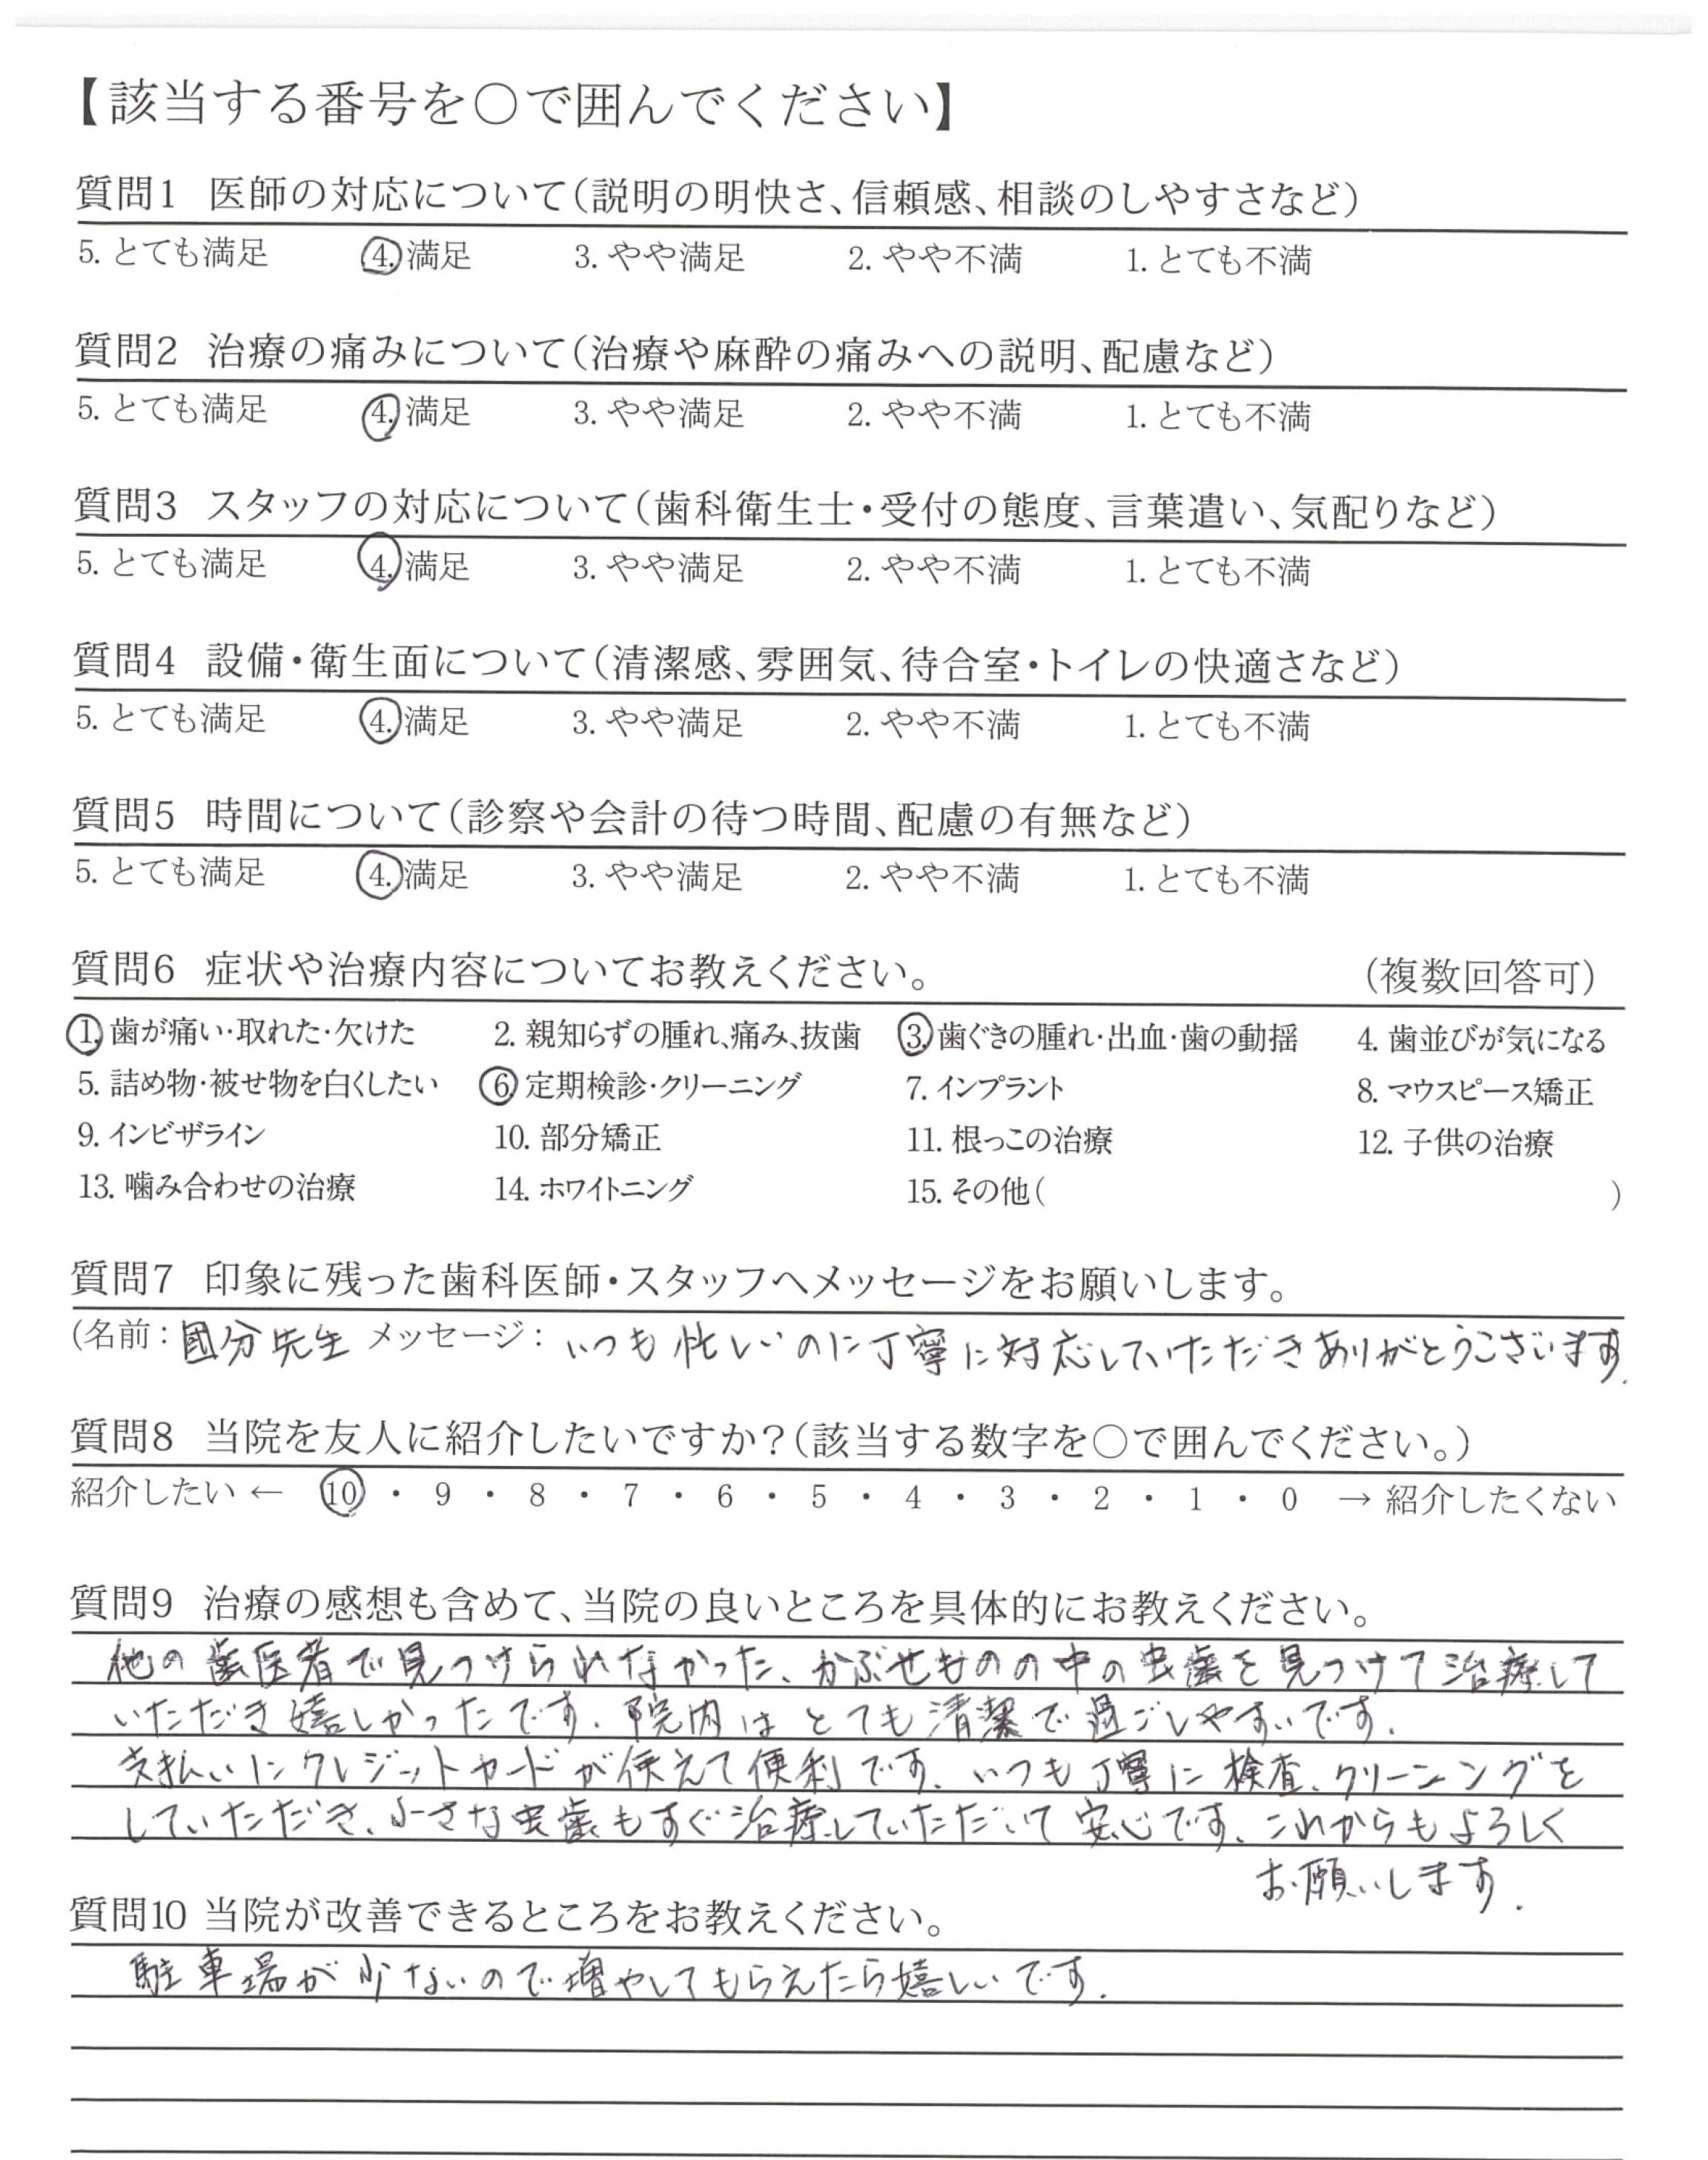 【該当する番号を○で囲んでください】
質問1 医師の対応について（説明の明快さ、信頼感、相談のしやすさなど）
5. とても満足 4. 満足 3. やや満足 2. やや不満 1. とても不満
質問2 治療の痛みについて（治療や麻酔の痛みへの説明、配慮など）
5. とても満足 4. 満足 3. やや満足 2. やや不満 1. とても不満
質問3 スタッフの対応について（歯科衛生士・受付の態度、言葉遣い、気配りなど）
5. とても満足 4. 満足 3. やや満足 2. やや不満 1. とても不満
質問4 設備・衛生面について（清潔感、雰囲気、待合室・トイレの快適さなど）
5. とても満足 4. 満足 3. やや満足 2. やや不満 1. とても不満
質問5 時間について（診察や会計の待つ時間、配慮の有無など）
5. とても満足 4. 満足 3. やや満足 2. やや不満 1. とても不満
質問6 症状や治療内容についてお教えください。 （複数回答可）
1. 歯が痛い・取れた・欠けた 2. 親知らずの腫れ、痛み、抜歯 3. 歯ぐきの腫れ・出血・歯の動揺 4. 歯並びが気になる
5. 詰め物・被せ物を白くしたい 6. 定期検診・クリーニング 7. インプラント 8. マウスピース矯正
9. インビザライン 10. 部分矯正 11. 根っこの治療 12. 子供の治療
13. 噛み合わせの治療 14. ホワイトニング 15. その他（ ）
質問7 印象に残った歯科医師・スタッフへメッセージをお願いします。
（名前：國分先生 メッセージ：いつも忙しいのに丁寧に対応していただきありがとうございます.
質問8 当院を友人に紹介したいですか？（該当する数字を○で囲んでください。）
紹介したい ← 10 ・ 9 ・ 8 ・ 7 ・ 6 ・ 5 ・ 4 ・ 3 ・ 2 ・ 1 ・ 0 → 紹介したくない
質問9 治療の感想も含めて、当院の良いところを具体的にお教えください。
他の歯医者で見つけられなかった、かぶせものの中の虫歯を見つけて治療して
いただき嬉しかったです. 院内はとても清潔で過ごしやすいです.
支払いにクレジットカードが使えて便利です. いつも丁寧に検査、クリーニングを
していただき、小さな虫歯もすぐ治療していただいて安心です. これからもよろしく
お願いします.
質問10 当院が改善できるところをお教えください。
駐車場が少ないので増やしてもらえたら嬉しいです.